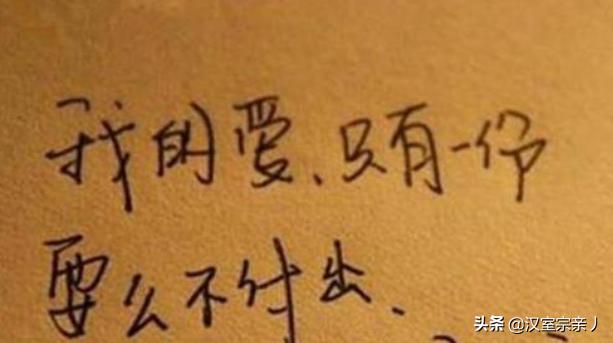 我的爱、只有一份
要么不付出、
头条 @汉室宗亲丿